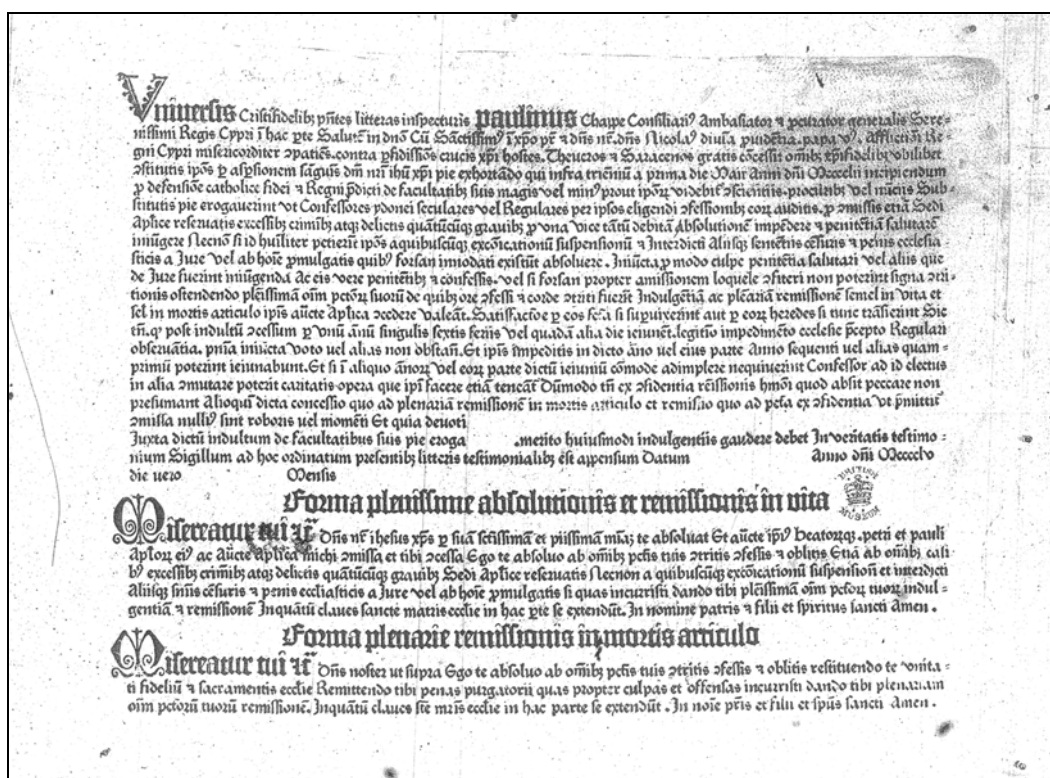 Vniuersis Cristifidelibꝫ pñtes litteras inspecturis Paulinus Chappe Consiliariꝰ Ambasiator ⁊ ꝓcurator generalis Sere-
nissimi Regis Cypri ī hac ꝑte Salutē in dnō Cū Sāctissimꝰ ī xp̄o pr̄ ⁊ dñs nr̄. dñs Nicolaꝰ diuīa ꝓuidētia. papa vꝰ. Afflictiōi Re-
gni Cypri misericorditer ↄpatiēs. contra ꝑfidissīos crucis xp̄i hostes. Theucros ⁊ Saracenos gratis cōcessit om̄ibꝫ xp̄ifidelibꝫ vbilibet
ↄstitutis ip̄os ꝑ asꝑsionem sāguīs dñi nr̄i ihū xp̄i pie exhortādo qui infra trienniū a prima die Maii Anni dñi Mcccclii incipiendum
ꝓ defensiōe catholice fidei ⁊ Regni p̄dicti de facultatibꝫ suis magis vel minꝰ prout ip̄oꝝ videbit᷑ ↄscientiis. procuratibꝫ vel nūciis Sub-
stitutis pie erogauerint vt Confessores ydonei seculares vel Regulares per ipsos eligendi ↄfessionibꝫ eoꝝ auditis. ꝓ ↄmissis etiā Sedi
Apl̄ice reseruatis excessibꝫ crimībꝫ atqꝫ delictis quātūcūqꝫ grauibꝫ ꝓ vna vice tātū debitā Absolutionē impēdere ⁊ penitētiā salutarē
iniūgere Necnō si id hūiliter petierīt ip̄os a quibuscūqꝫ excōicationū suspensionū ⁊ Interdicti Aliisqꝫ sentētiis cēsuris ⁊ penis ecclesia
sticis a Jure vel ab hoīe ꝓmulgatis quibꝰ forsan innodati existūt absoluere. Iniūcta ꝓ modo culpe penitētia salutari vel aliis que
de Jure fuerint iniūgenda Ac eis vere penitētibꝫ ⁊ confessis. vel si forsan propter amissionem loquele ↄfiteri non poterint signa ↄtri-
tionis ostendendo plēissimā oīm pctōꝝ suoꝝ de quibꝫ ore ↄfessi ⁊ corde ↄtriti fuerīt Indulgētiā ac plēariā remissionē semel in vita et
sel in mortis articulo ip̄is aūcte Apl̄ica ↄcedere valeāt. Satisfactōe ꝑ eos fc̄ā si suꝑuixerint aut ꝑ eoꝝ heredes si tunc trāsierīt Sic
tn̄. qꝫ post indultū ↄcessum ꝑ vnū ānū singulis sextis feriis vel quadā alia die ieiunēt. legittīo impedimēto ecclesie p̄cepto Regulari
obseruātia. pnīa iniūcta voto vel alias non obstañ. Et ip̄is īmpeditis in dicto āno vel eius parte Anno sequenti vel alias quam-
primū poterint ieiunabunt. Et si ī aliquo ānoꝝ vel eoꝝ parte dictū ieiuniū cōmode adimplere nequiuerint Confessor ad id electus
in alia ↄmutare poterit caritatis opera que ip̄i facere etiā teneāt᷑ Dūmodo tn̄ ex ↄfidentia rēissionis hmōi quod absit peccare non
presumant Alioqui dicta concessio quo ad plenariā remissionē in mortis articulo et remissio quo ad pctā ex ↄfidentia vt p̄mittit᷑
ↄmissa nulliꝰ sint roboris vel momēti Et quia deuoti
Juxta dictū indultum de facultatibus suis pie eroga . merito huiusmodi indulgentiis gaudere debet In veritatis testimo-
nium Sigillum ad hoc ordinatum presentibꝫ litteris testimonialibꝫ ēst appensum Datum Anno dñi Mcccclv
die vero Mensis
Forma plenissime absolutionis et remissionis in vita
BRITISH MUSEUM
Misereatur tui ⁊ꝛ̄ Dñs nr̄ ihesus xp̄s ꝑ suā sctīssimā et piissimā mīaꝫ te absoluat Et aūcte ip̄iꝰ Beatorꝫqꝫ. petri et pauli
Aplōꝝ eiꝰ ac Aūcte Apl̄ica michi ↄmissa et tibi ↄcessa Ego te absoluo ab om̄ibꝫ pctīs tuis ↄtritis ↄfessis ⁊ oblitis Etiā ab om̄ibꝫ casi
bꝰ excessibꝫ crimībꝫ atqꝫ delictis quātūcūqꝫ grauibꝫ Sedi Apl̄ice reseruatis Necnon a quibuscūqꝫ excōicationū suspensionū et interdicti
Aliisqꝫ snīīs cēsuris ⁊ penis ecclīasticis a Jure vel ab hoīe ꝓmulgatis si quas incurristi dando tibi plēissimā oīm pctōꝝ tuoꝝ indul-
gentiā ⁊ remissionē Inquātū claues sancte matris ecclīe in hac ꝑte se extendūt. In nomine patris ⁊ filii et spiritus sancti Amen.
Forma plenarie remissionis in mortis articulo
Misereatur tui ⁊ꝛ̄ Dñs noster ut supra Ego te absoluo ab om̄ibꝫ pctīs tuis ↄtritis ↄfessis ⁊ oblitis restituendo te vnita-
ti fideliū ⁊ sacramentis ecclīe Remittendo tibi penas purgatorii quas propter culpas et offensas incurristi dando tibi plenariam
oīm pctōrū tuorū remissionē. Inquātū claues sctē mrīs ecclīe in hac parte se extendūt. In noīe pr̄is et filii et spūs sancti Amen.